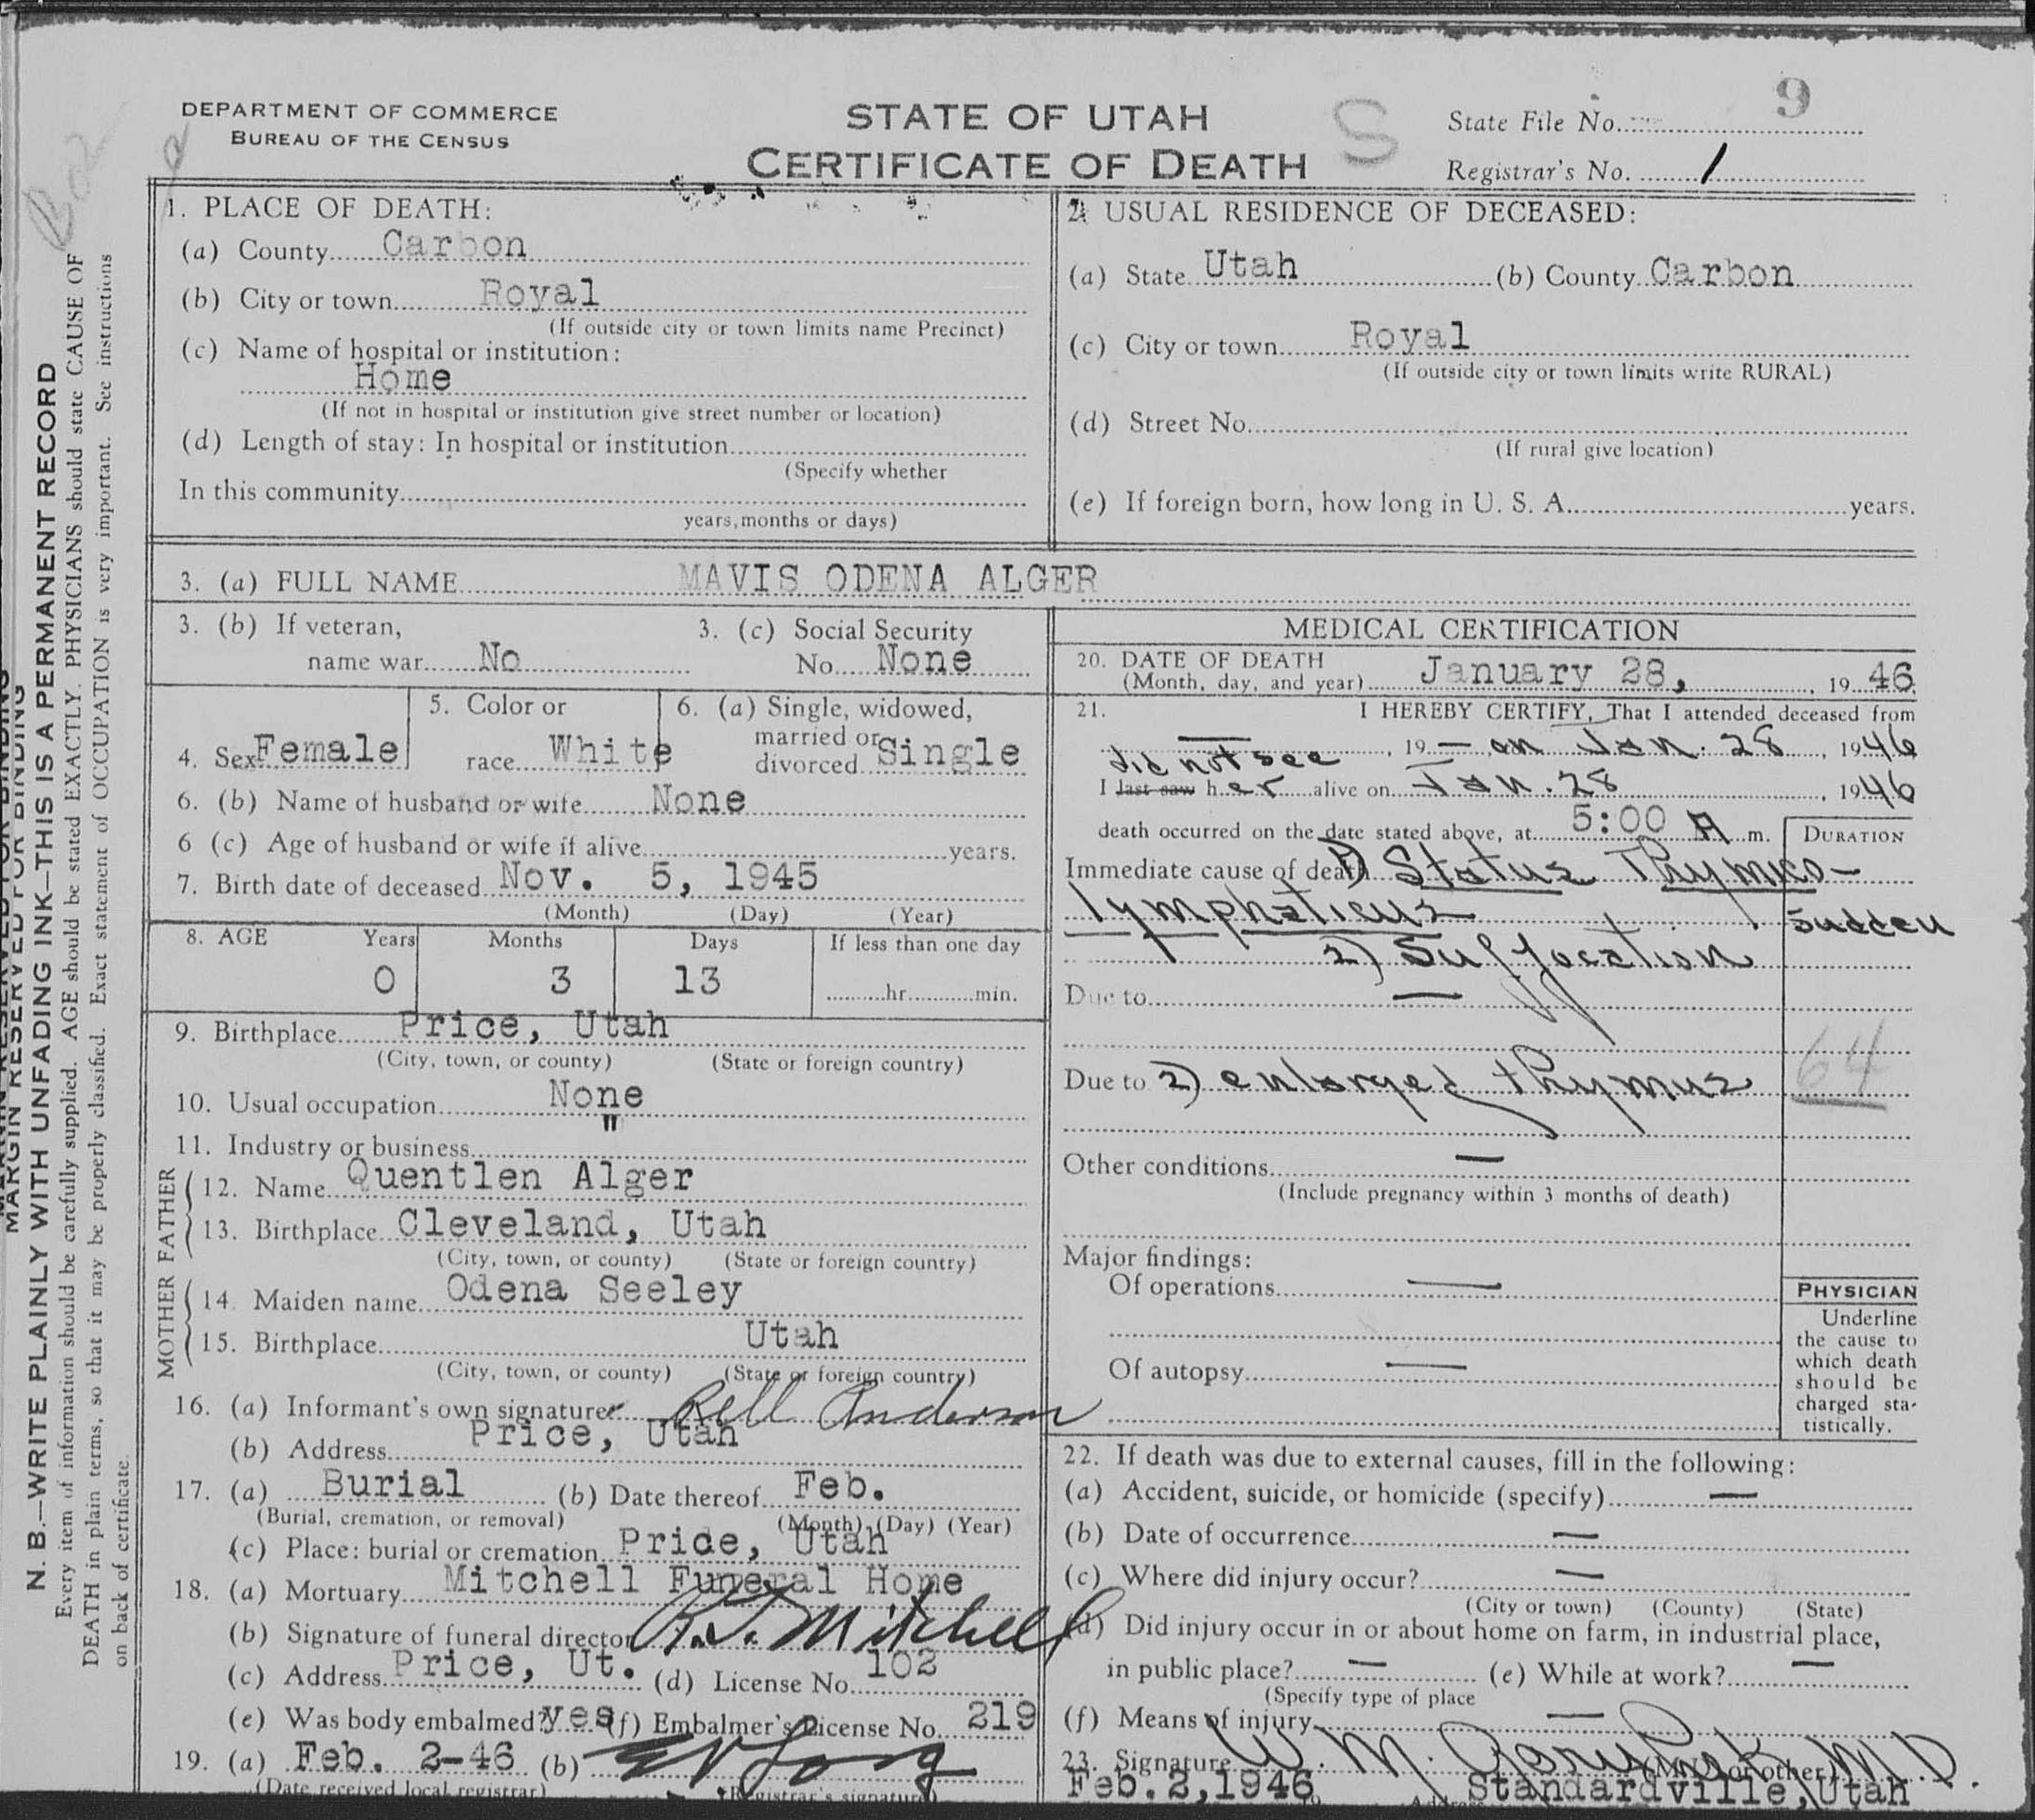 DEPARTMENT OF COMMERCE
BUREAU OF THE CENSUS
STATE OF UTAH
CERTIFICATE OF DEATH
S
State File No. 9
Registrar's No. 1
1. PLACE OF DEATH:
(a) County Carbon
(b) City or town Royal
(If outside city or town limits name Precinct)
(c) Name of hospital or institution:
Home
(If not in hospital or institution give street number or location)
(d) Length of stay: In hospital or institution
(Specify whether
In this community
years, months or days)
2. USUAL RESIDENCE OF DECEASED:
(a) State Utah (b) County Carbon
(c) City or town Royal
(If outside city or town limits write RURAL)
(d) Street No.
(If rural give location)
(e) If foreign born, how long in U. S. A. years.
3. (a) FULL NAME MAVIS ODENA ALGER
3. (b) If veteran,
name war No
3. (c) Social Security
No. None
4. Sex Female
5. Color or
race White
6. (a) Single, widowed,
married or
divorced Single
6. (b) Name of husband or wife None
6 (c) Age of husband or wife if alive years.
7. Birth date of deceased Nov. 5, 1945
(Month) (Day) (Year)
8. AGE Years Months Days If less than one day
0 3 13 hr. min.
9. Birthplace Price, Utah
(City, town, or county) (State or foreign country)
10. Usual occupation None
11. Industry or business "
FATHER
12. Name Quentlen Alger
13. Birthplace Cleveland, Utah
(City, town, or county) (State or foreign country)
MOTHER
14. Maiden name Odena Seeley
15. Birthplace Utah
(City, town, or county) (State or foreign country)
16. (a) Informant's own signature Rell Anderson
(b) Address Price, Utah
17. (a) Burial (b) Date thereof Feb.
(Burial, cremation, or removal) (Month) (Day) (Year)
(c) Place: burial or cremation Price, Utah
18. (a) Mortuary Mitchell Funeral Home
(b) Signature of funeral director Mitchell
(c) Address Price, Ut. (d) License No. 102
(e) Was body embalmed? yes (f) Embalmer's License No. 219
19. (a) Feb. 2-46 (b)
(Date received local registrar) (Registrar's signature)
MEDICAL CERTIFICATION
20. DATE OF DEATH
(Month, day, and year) January 28, 1946
21. I HEREBY CERTIFY, That I attended deceased from
— , 19 — on Jan. 28 , 1946
did not see
I last saw her alive on Jan. 28 , 1946
death occurred on the date stated above, at 5:00 A m.
DURATION
Immediate cause of death 1) Status Thymico-
lymphaticus
Sudden
2) Suffocation
Due to —
Due to 2) enlarged thymus
64
Other conditions —
(Include pregnancy within 3 months of death)
Major findings:
Of operations —
Of autopsy —
PHYSICIAN
Underline
the cause to
which death
should be
charged sta-
tistically.
22. If death was due to external causes, fill in the following:
(a) Accident, suicide, or homicide (specify) —
(b) Date of occurrence —
(c) Where did injury occur? —
(City or town) (County) (State)
(d) Did injury occur in or about home on farm, in industrial place,
in public place? — (e) While at work? —
(Specify type of place
(f) Means of injury —
23. Signature W. M. M.D.
(M. D. or other)
Feb. 2, 1946 Standardville, Utah
MARGIN RESERVED FOR BINDING
N. B.—WRITE PLAINLY WITH UNFADING INK—THIS IS A PERMANENT RECORD
Every item of information should be carefully supplied. AGE should be stated EXACTLY. PHYSICIANS should state CAUSE OF
DEATH in plain terms, so that it may be properly classified. Exact statement of OCCUPATION is very important. See instructions
on back of certificate.